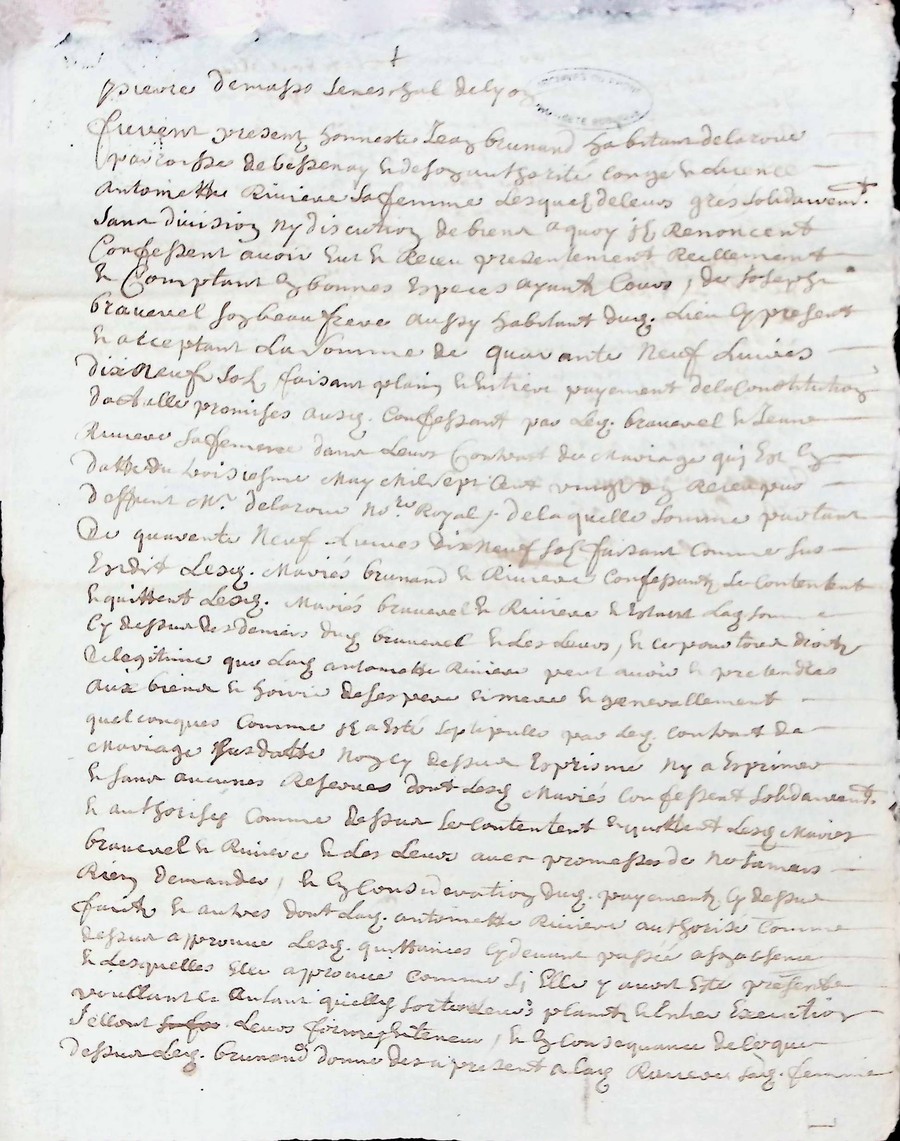 pierre demasso seneschal de lyon
furent present honneste Jean brunand habitant delaroue
parroisse de bessenay Et desoy authorité congé Et licence
antoinette Riviere sa femme Lesquelz deleurs grés solidairemt.
sans division ny discution de biens a quoy ils Renoncent
Confessent avoir Eut Et Receu presentement Reellement
Et Comptant En bonnes Especes ayant Cours, de Joseph
brauevel son beau frere aussy habitant dud. Lieu Cy present
Et acceptant La somme de quarante Neuf Livres
dix Neuf sols faisant plain Et Entier payement delaConstitution
dotalle promises ausd. Confessant par Led. brauevel Et Jeanne
Riviere sa femme dans Leurs Contract de Mariage qui Est En
datte du troisiesme May Mil sept Cent vingt Receu par
deffunt Mr. delaroue Nore. Royal, delaquelle somme partant
De quarente Neuf Livres dix Neuf sols faisant comme sus
Est dit Lesd. Mariés brunand Et Riviere Confessantz se Contentent
Et quittent Lesd. Mariés brauevel Et Riviere Et Estant Lad. somme
Cy dessus des deniers dud. brauevel Et des Leurs, Et ce pour tous droitz
de legitime que Lad. antoinette Riviere peut avoir Et pretendres
aux biens Et hoirie de ses pere Et mere Et generallement
quelconques Comme Il a Esté septipullé par Led. Contract de
Mariage susdatté Non Cy dessus Exprimé Ny a Exprimer
Et sans aucunes Reserves dont Lesd. Mariés Confessent solidairemt.
Et authorisés Comme dessus se contentent Et quittent Lesd. Mariés
brauevel Et Riviere Et Les Leurs avec promesses de Ne Jamais
Rien demander, Et En Consideration dud. payement Cy dessus
fait Et autres dont Lad. antoinette Riviere authorisé Comme
dessus approuve Lesd. quittances Cydevant passée a son absence
Et Lesquelles Elle approuve Comme si Elle y avoit Esté présente
voullant Et Autant quelles sortent Leurs plain Et Entier Execution
selont Leurs forme Et teneur, Et En Consequance de ce que
dessus Led. brunand donne des a present a Lad. Riviere sad. femme